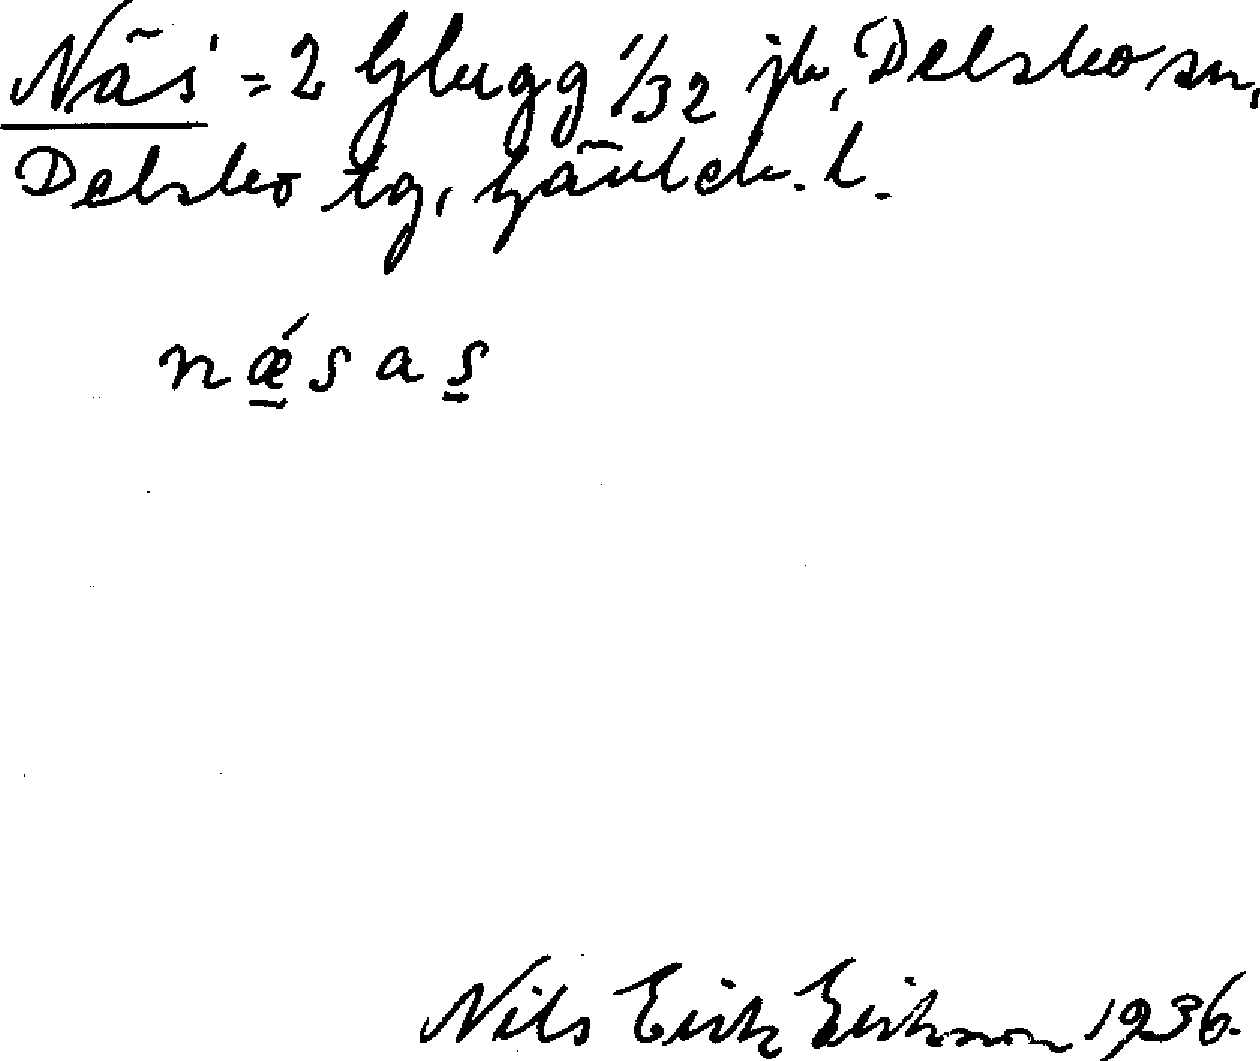 Näs' = 2 Glugg 1/32 jb, Delsbo sn,
Delsbo tg, Gävleb. l.
nǽsas
Nils Erik Erikson 1936.